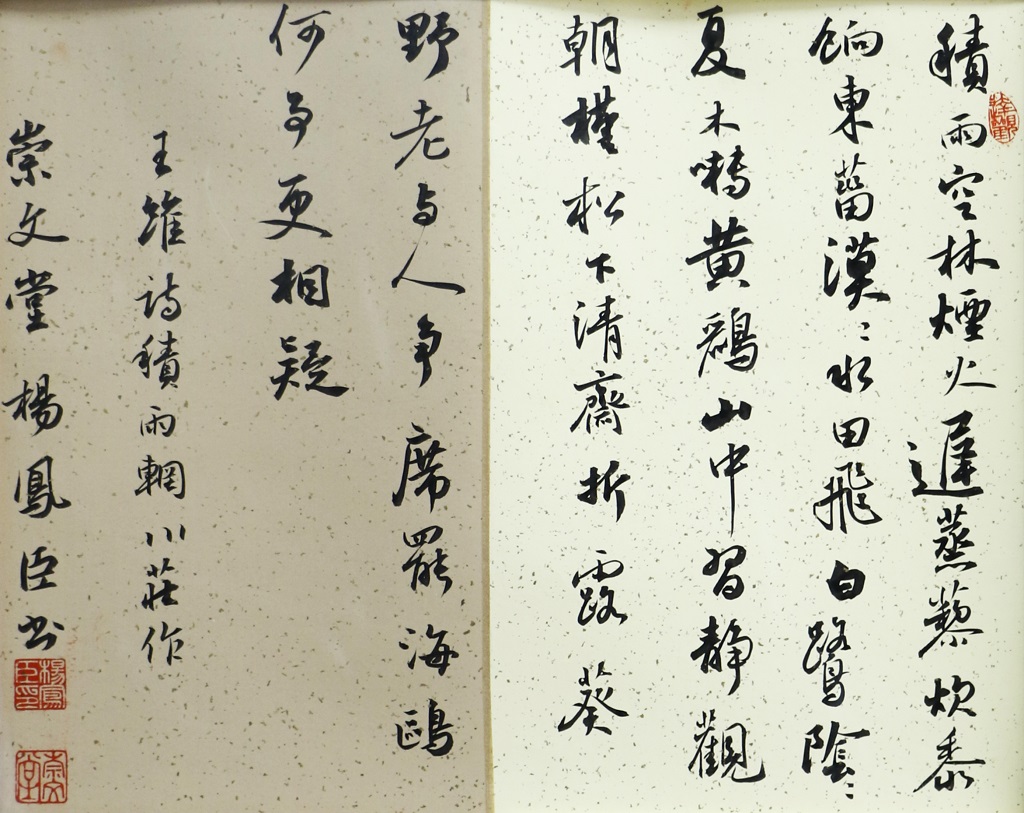 積雨空林煙火遲蒸藜炊黍
餉東菑漠〻水田飛白鷺陰〻
夏木囀黃鸝山中習靜觀
朝槿松下清齋折露葵
野老与人争席罷海鷗
何事更相疑
王維詩積雨輞川莊作
崇文堂楊鳳臣书
楊鳳臣印
崇文堂